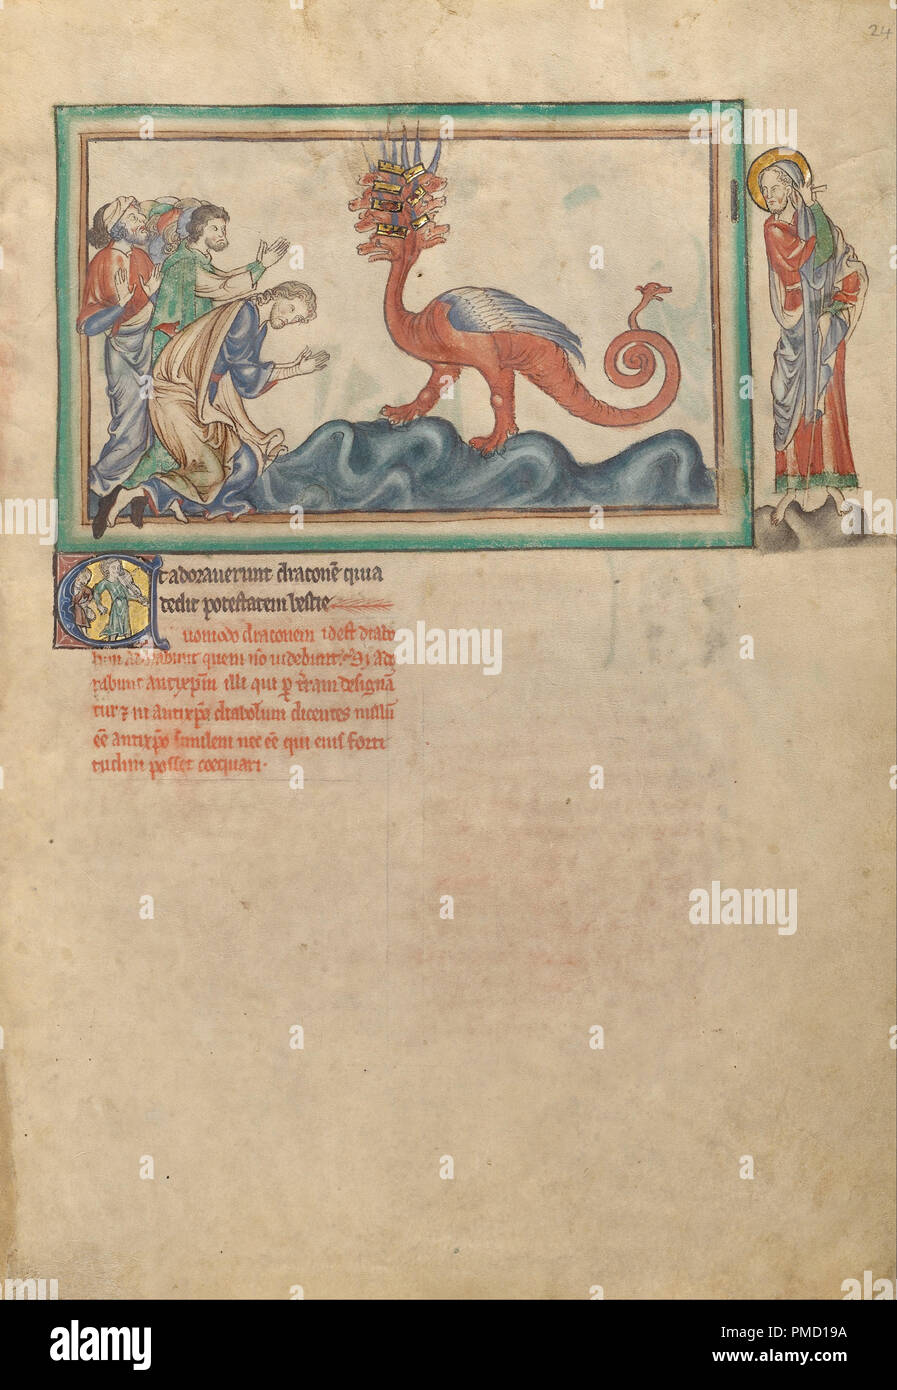 24
Et adoraverunt draconē quia
dedit potestatem bestie
Quomodo draconem id est diabo
lum adorabunt quem nō videbunt. Si ado
rabunt antixp̄m illi qui p̄ t̄ram designā
tur ⁊ in antixp̄o diabolum dicentes nullū
eē antixp̄o similem nec eē qui eius forti
tudini posset coequari.
alamy
Image ID: PMD19A
www.alamy.com